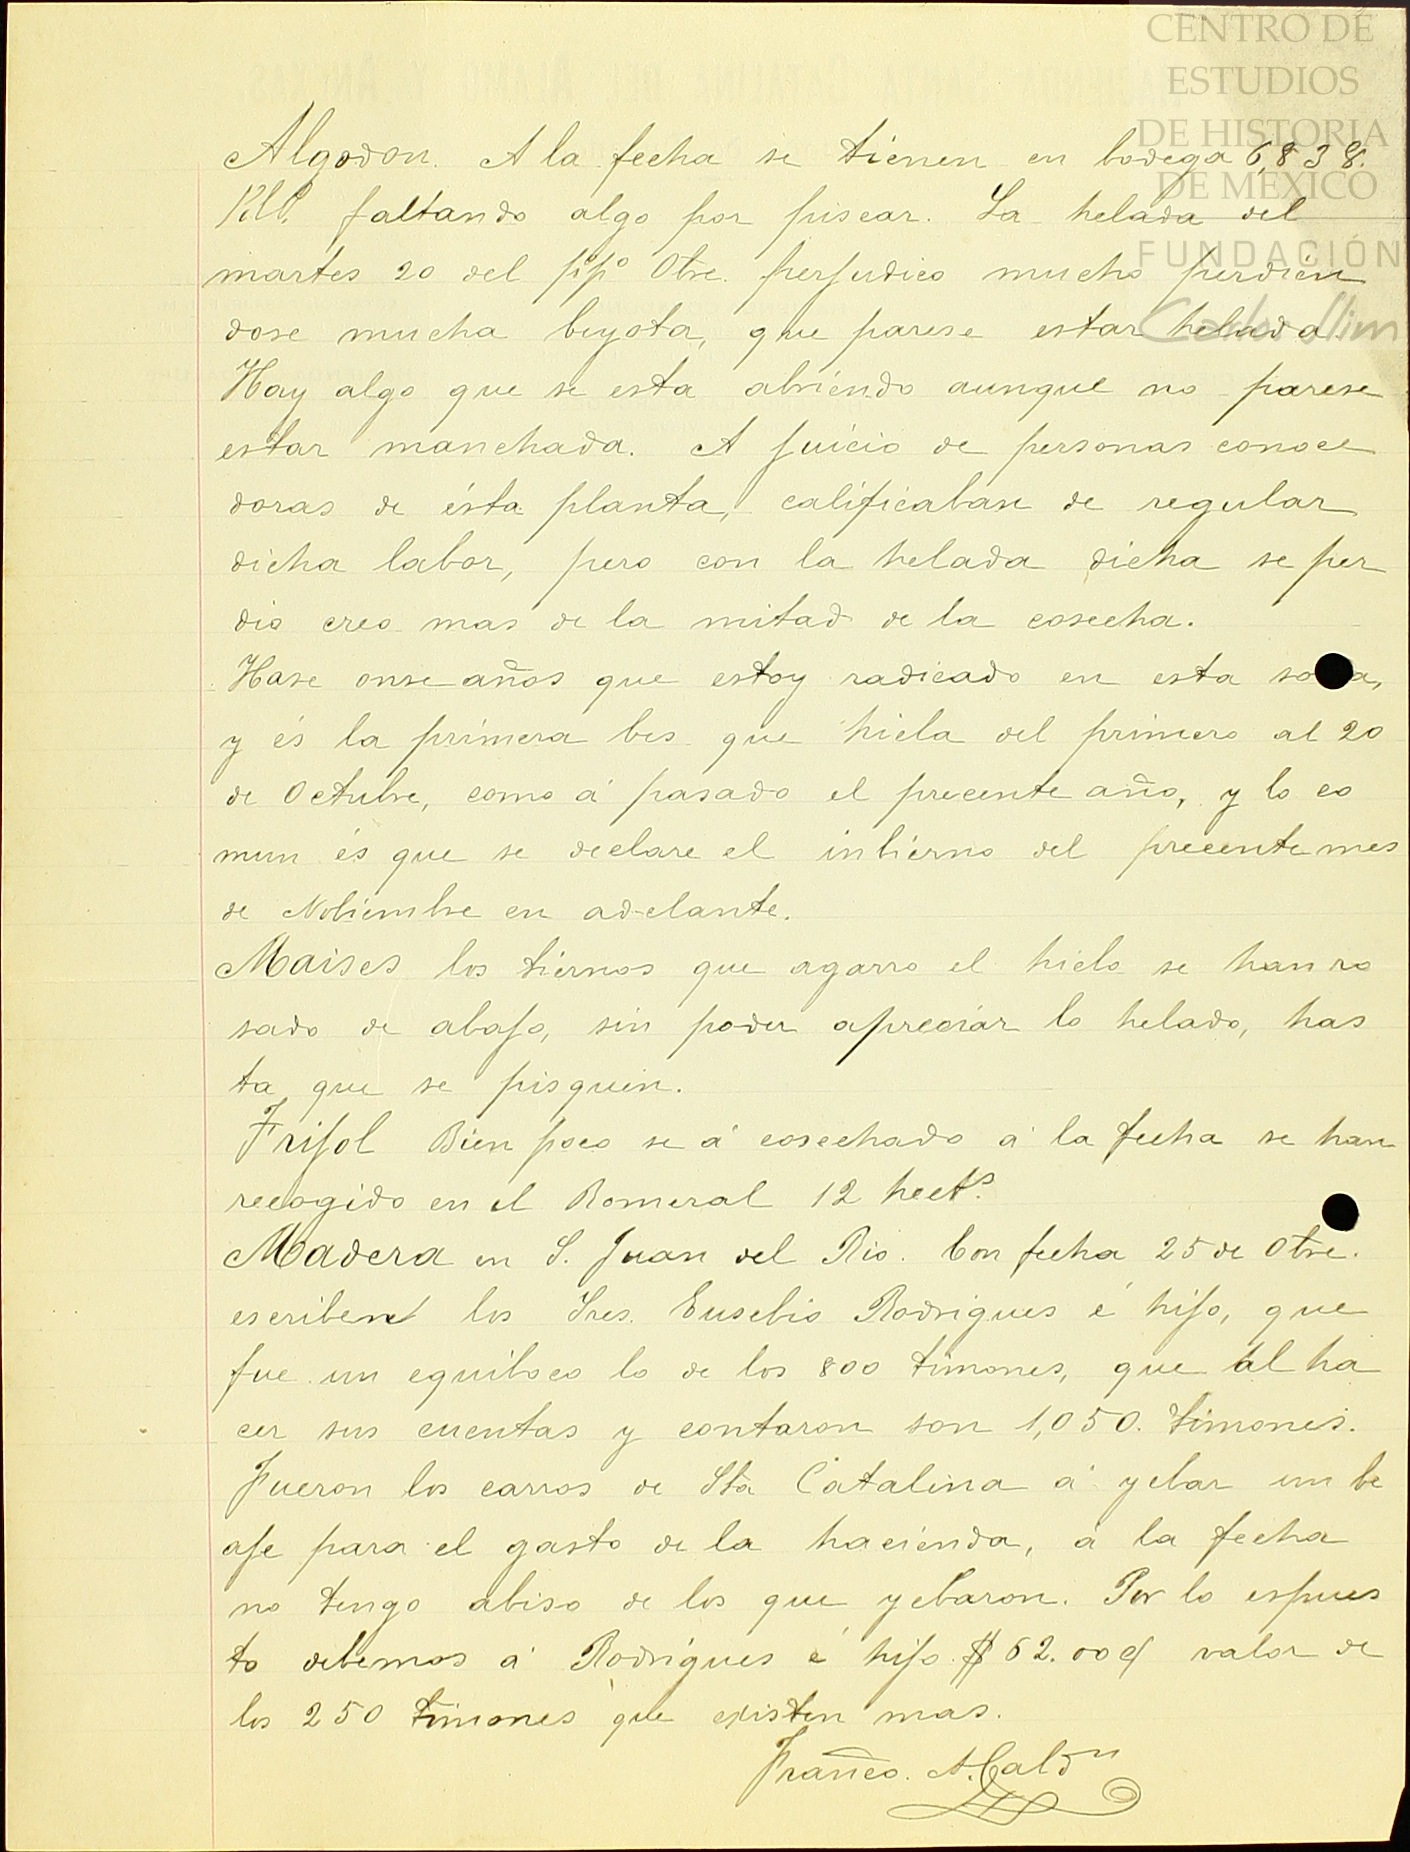 CENTRO DE
ESTUDIOS
DE HISTORIA
DE MÉXICO
FUNDACIÓN
Carlos Slim
Algodon. A la fecha se tienen en bodega 6,838.
Kls. faltando algo por piscar. La helada del
martes 20 del p.p.º Obre. perjudico mucho perdien
dose mucha beyota, que parese estar helada.
Hay algo que se esta abriendo aunque no parese
estar manchada. A juicio de personas conoce
doras de ésta planta, calificaban de regular
dicha labor, pero con la helada dicha se per
dio creo mas de la mitad de la cosecha.
Hase onse años que estoy radicado en esta sona,
y és la primera bes que hiela del primero al 20
de Octubre, como á pasado el precente año, y lo co
mun és que se declare el inbierno del precente mes
de Nobiembre en adelante.
Maises los tiernos que agarro el hielo se han ro
sado de abajo, sin poder apreciar lo helado, has
ta que se pisquen.
Frijol Bien poco se á cosechado á la fecha se han
recogido en el Romeral 12 hects.
Madera en S. Juan del Rio. Con fecha 25 de Obre.
escriben los Sres. Eusebio Rodrigues é hijo, que
fue un equiboco lo de los 800 timones, que al ha
cer sus cuentas y contaron son 1,050. timones.
Fueron los carros de Sta Catalina á yebar un be
aje para el gasto de la hacienda, á la fecha
no tengo abiso de los que yebaron. Por lo espues
to debemos á Rodrigues é hijo $62.00 valor de
los 250 timones que existen mas.
Franco. A. Caldn